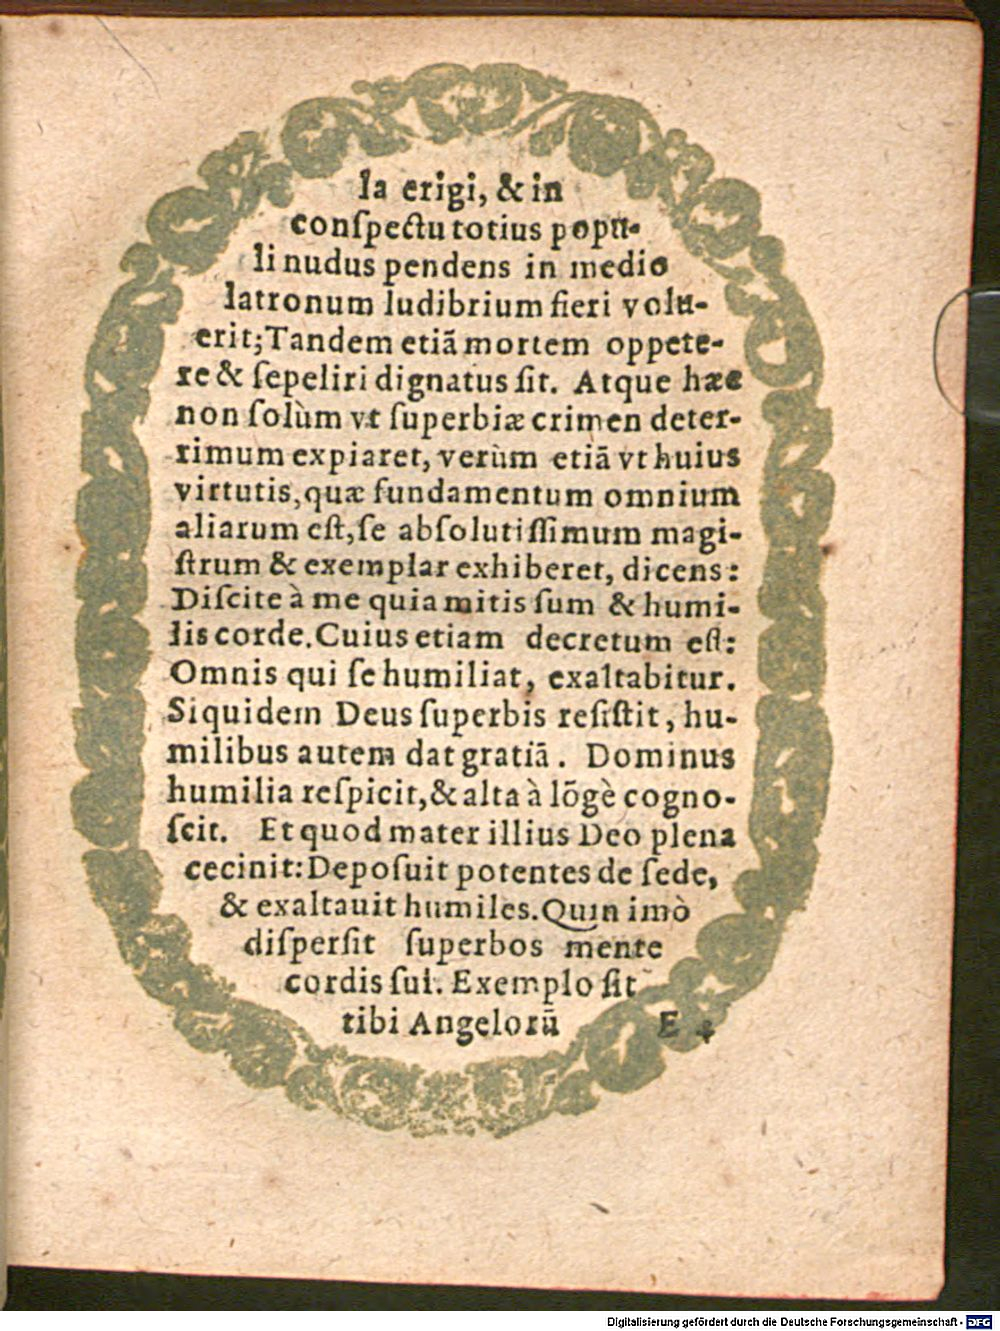 la erigi, & in
conſpectu totius popu-
li nudus pendens in medio
latronum ludibrium fieri volu-
erit; Tandem etiã mortem oppete-
re & ſepeliri dignatus ſit. Atque hæc
non ſolùm vt ſuperbiæ crimen deter-
rimum expiaret, verùm etiã vt huius
virtutis, quæ fundamentum omnium
aliarum eſt, ſe abſolutiſſimum magi-
ſtrum & exemplar exhiberet, dicens:
Diſcite à me quia mitis ſum & humi-
lis corde. Cuius etiam decretum eſt:
Omnis qui ſe humiliat, exaltabitur.
Siquidem Deus ſuperbis reſiſtit, hu-
milibus autem dat gratiã. Dominus
humilia reſpicit, & alta à lõgè cogno-
ſcit. Et quod mater illius Deo plena
cecinit: Depoſuit potentes de ſede,
& exaltauit humiles. Quin imò
diſperſit ſuperbos mente
cordis ſui. Exemplo ſit
tibi Angelorũ E 4
Digitalisierung gefördert durch die Deutsche Forschungsgemeinschaft - DFG